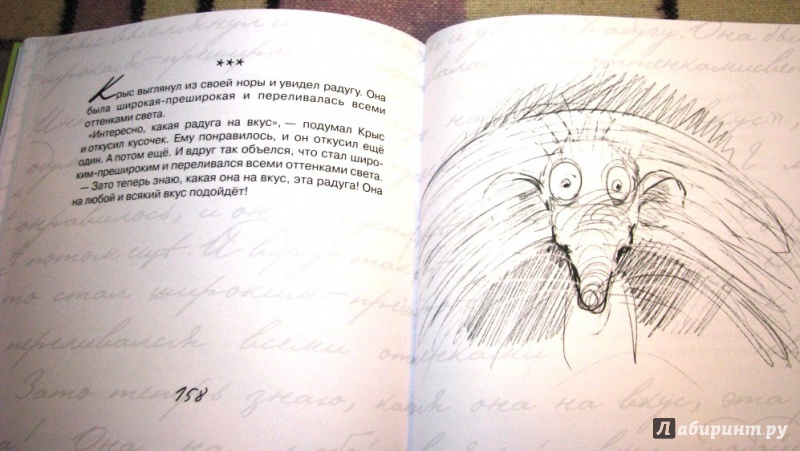 ***
Крыс выглянул из своей норы и увидел радугу. Она
была широкая-преширокая и переливалась всеми
оттенками света.
«Интересно, какая радуга на вкус», — подумал Крыс
и откусил кусочек. Ему понравилось, и он откусил ещё
один. А потом ещё. И вдруг так объелся, что стал широ-
ким-прешироким и переливался всеми оттенками света.
— Зато теперь знаю, какая она на вкус, эта радуга! Она
на любой и всякий вкус подойдёт!
то стал широким-
переливался всеми оттенками
Зато теперь знаю, какая она на вкус, эта
158
Лабиринт.ру